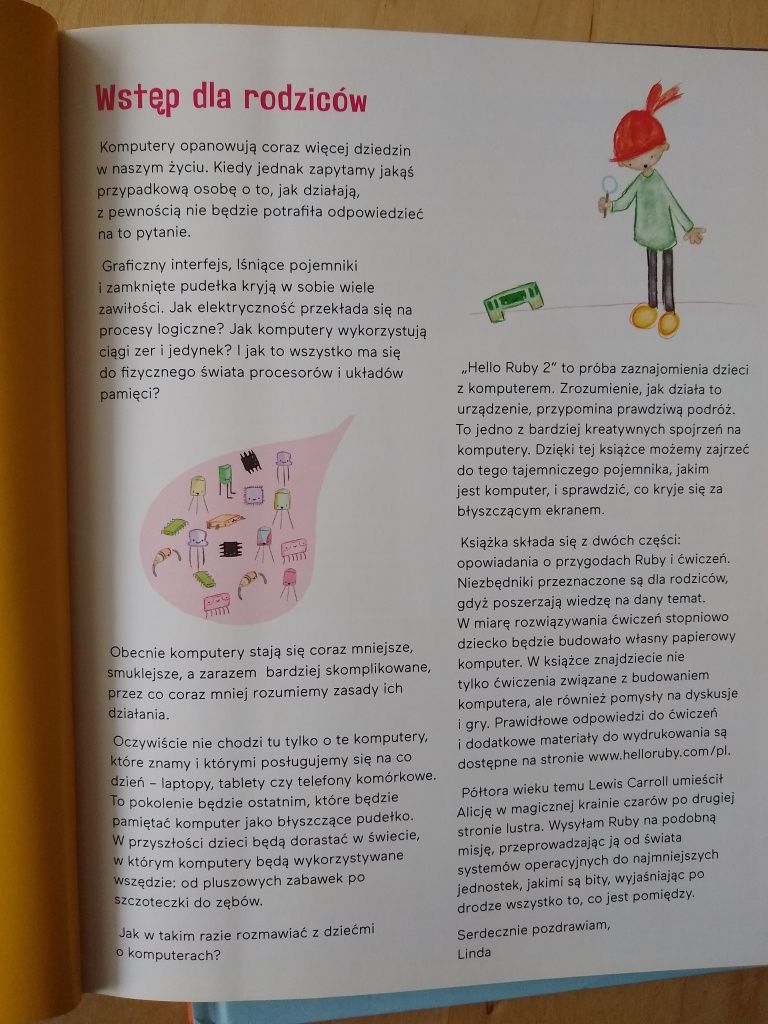 Wstęp dla rodziców
Komputery opanowują coraz więcej dziedzin
w naszym życiu. Kiedy jednak zapytamy jakąś
przypadkową osobę o to, jak działają,
z pewnością nie będzie potrafiła odpowiedzieć
na to pytanie.
Graficzny interfejs, lśniące pojemniki
i zamknięte pudełka kryją w sobie wiele
zawiłości. Jak elektryczność przekłada się na
procesy logiczne? Jak komputery wykorzystują
ciągi zer i jedynek? I jak to wszystko ma się
do fizycznego świata procesorów i układów
pamięci?
Obecnie komputery stają się coraz mniejsze,
smuklejsze, a zarazem bardziej skomplikowane,
przez co coraz mniej rozumiemy zasady ich
działania.
Oczywiście nie chodzi tu tylko o te komputery,
które znamy i którymi posługujemy się na co
dzień – laptopy, tablety czy telefony komórkowe.
To pokolenie będzie ostatnim, które będzie
pamiętać komputer jako błyszczące pudełko.
W przyszłości dzieci będą dorastać w świecie,
w którym komputery będą wykorzystywane
wszędzie: od pluszowych zabawek po
szczoteczki do zębów.
Jak w takim razie rozmawiać z dziećmi
o komputerach?
„Hello Ruby 2” to próba zaznajomienia dzieci
z komputerem. Zrozumienie, jak działa to
urządzenie, przypomina prawdziwą podróż.
To jedno z bardziej kreatywnych spojrzeń na
komputery. Dzięki tej książce możemy zajrzeć
do tego tajemniczego pojemnika, jakim
jest komputer, i sprawdzić, co kryje się za
błyszczącym ekranem.
Książka składa się z dwóch części:
opowiadania o przygodach Ruby i ćwiczeń.
Niezbędniki przeznaczone są dla rodziców,
gdyż poszerzają wiedzę na dany temat.
W miarę rozwiązywania ćwiczeń stopniowo
dziecko będzie budowało własny papierowy
komputer. W książce znajdziecie nie
tylko ćwiczenia związane z budowaniem
komputera, ale również pomysły na dyskusje
i gry. Prawidłowe odpowiedzi do ćwiczeń
i dodatkowe materiały do wydrukowania są
dostępne na stronie www.helloruby.com/pl.
Półtora wieku temu Lewis Carroll umieścił
Alicję w magicznej krainie czarów po drugiej
stronie lustra. Wysyłam Ruby na podobną
misję, przeprowadzając ją od świata
systemów operacyjnych do najmniejszych
jednostek, jakimi są bity, wyjaśniając po
drodze wszystko to, co jest pomiędzy.
Serdecznie pozdrawiam,
Linda